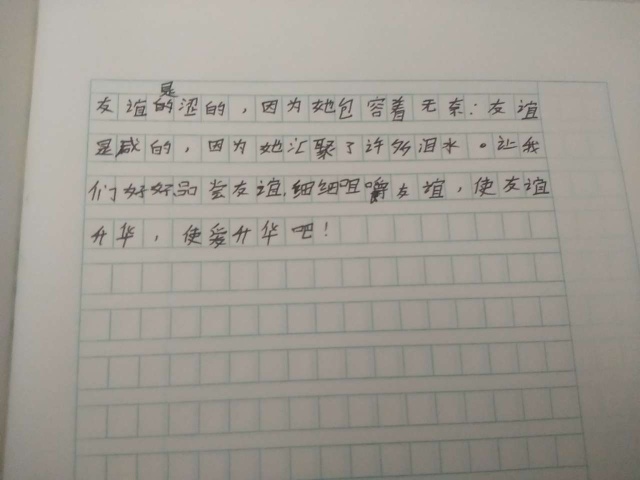 友谊是涩的，因为她包容着无奈；友谊
是咸的，因为她汇聚了许多泪水。让我
们好好品尝友谊，细细咀嚼友谊，使友谊
升华，使爱升华吧！